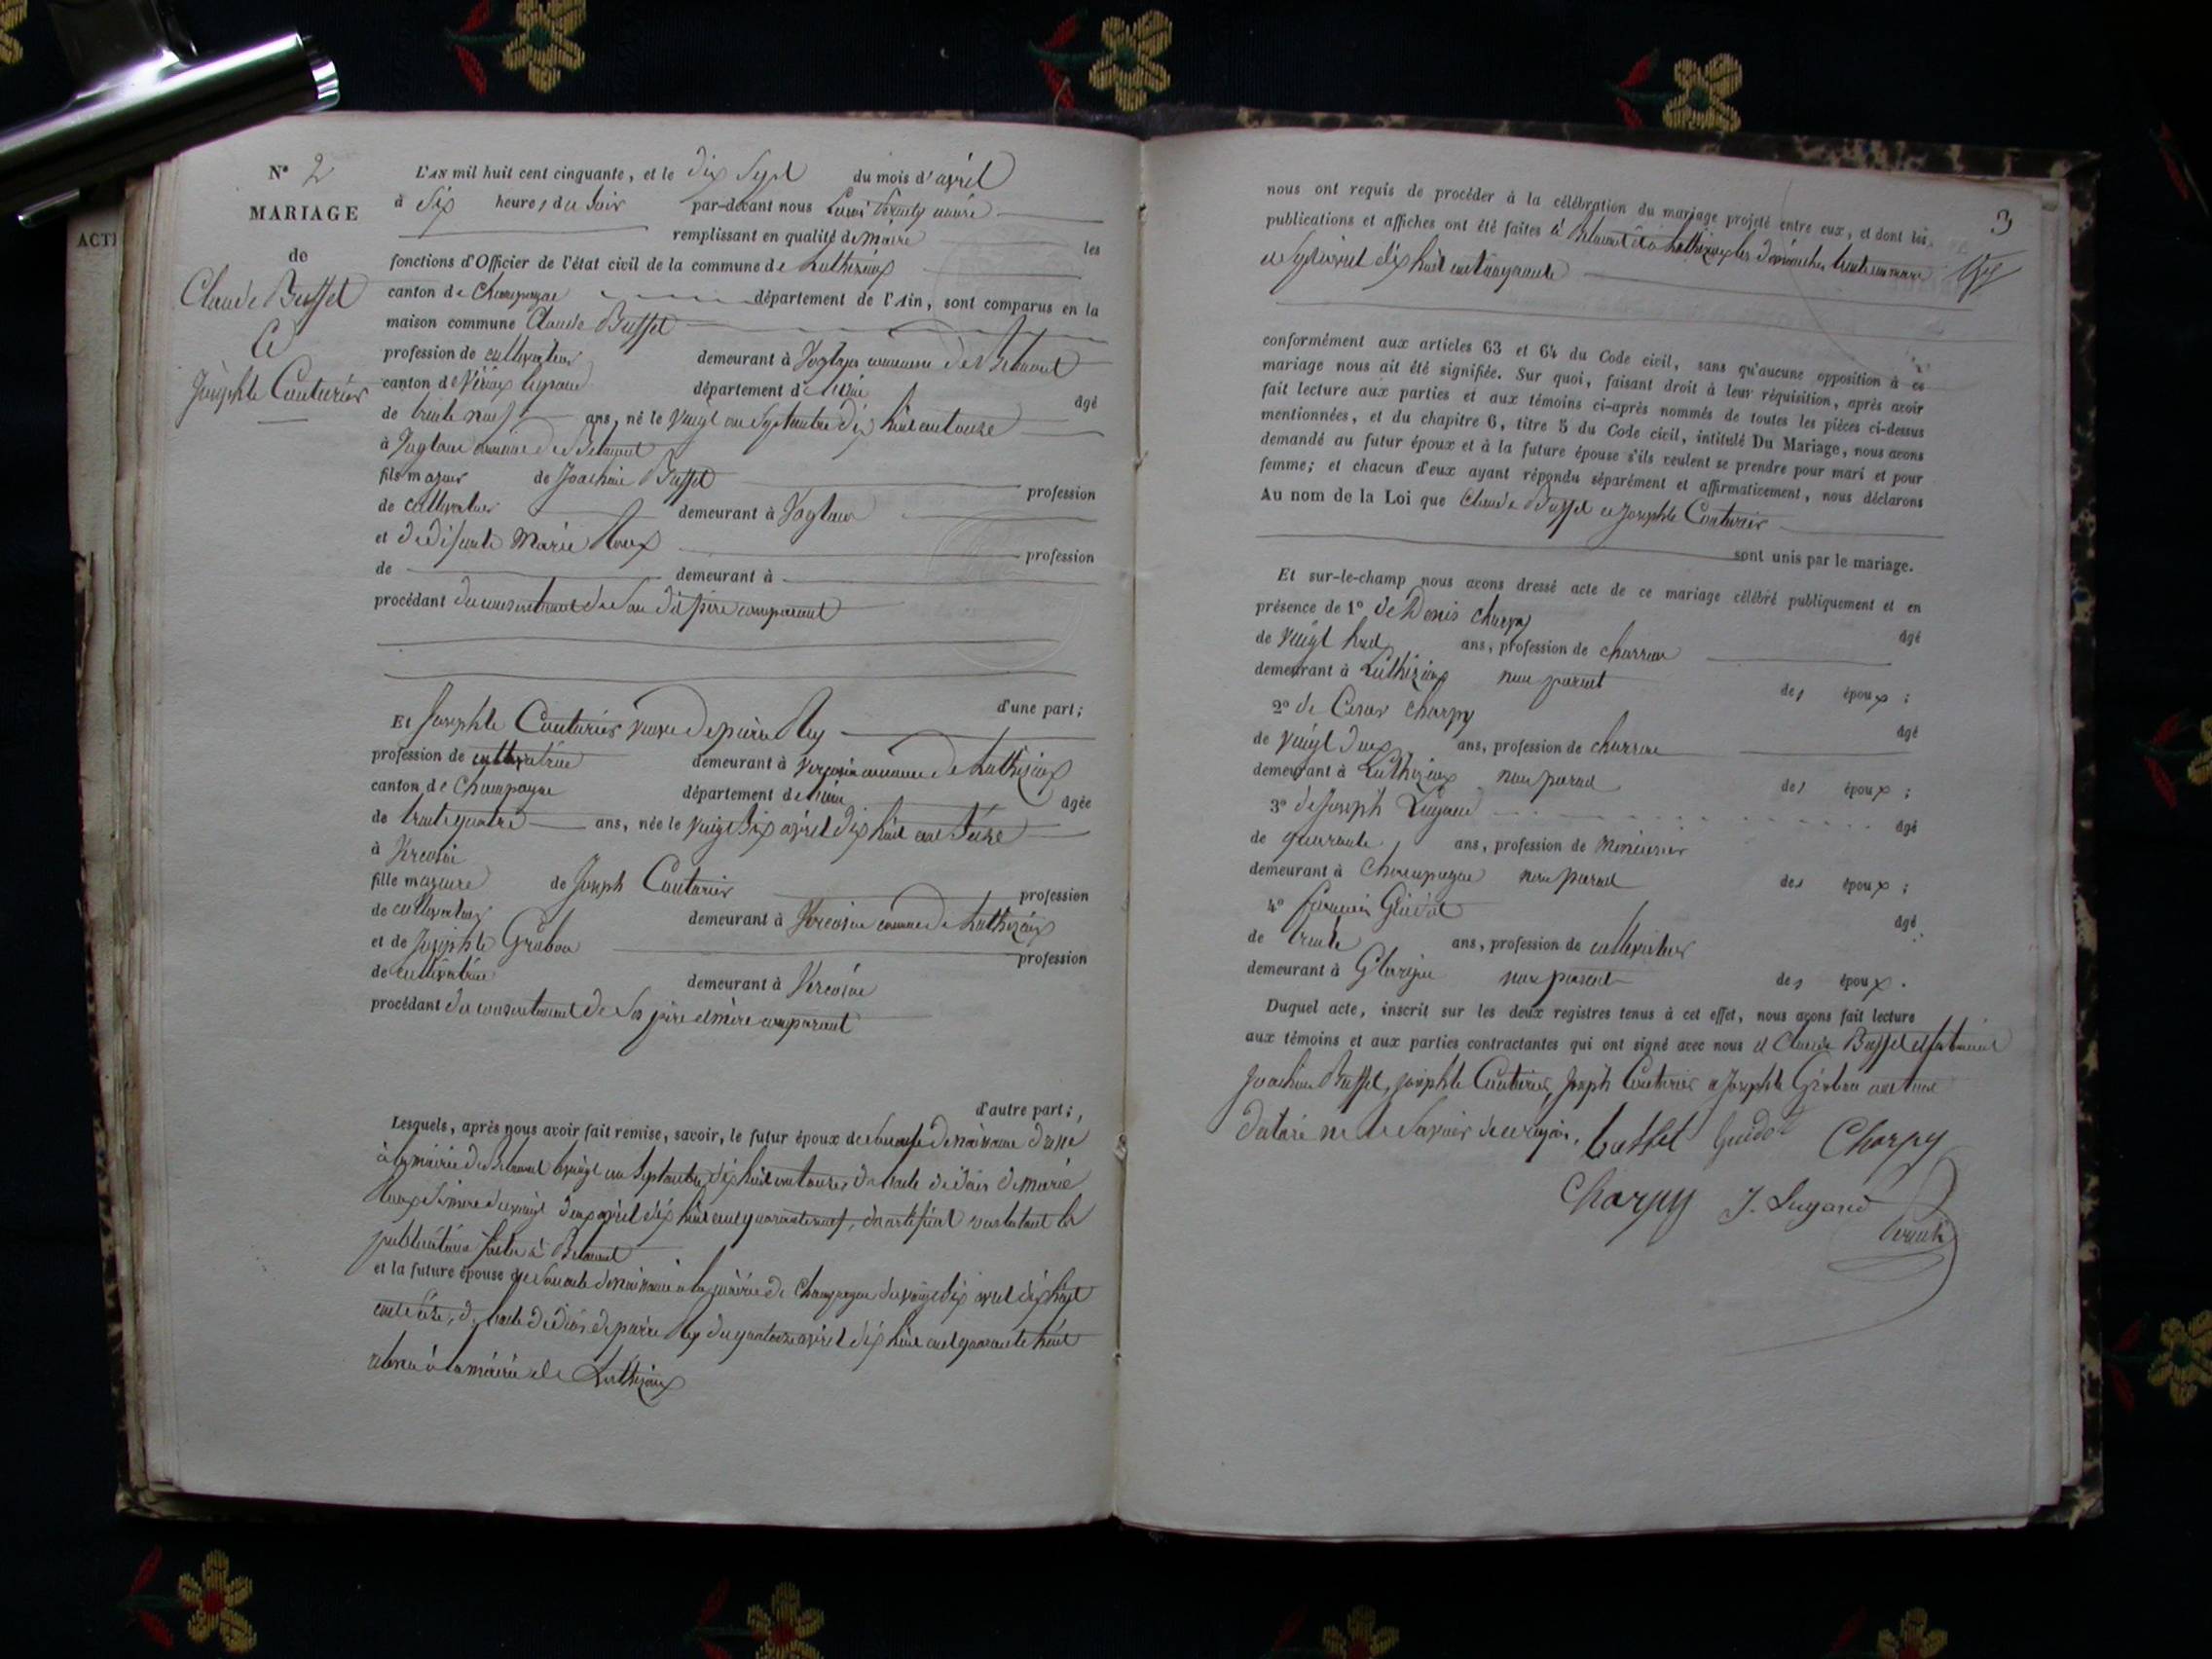 ACT
N° 2
MARIAGE
de
Claude Bussel
et
Josephte Couturier
L'AN mil huit cent cinquante, et le dix Sept du mois d'avril
à Six heures du Soir par-devant nous
remplissant en qualité de Maire les
fonctions d'Officier de l'état civil de la commune de Luthézieux
canton de Champagne département de l'Ain, sont comparus en la
maison commune Claude Bussel
profession de cultivateur demeurant à commune de
canton de département de
de trente neuf ans, né le vingt un Septembre dix huit cent onze âgé
à
fils majeur de Joachim Bussel profession
de cultivateur demeurant à
et de défunte Marie Roux profession
de demeurant à
procédant du consentement de Son dit père comparant
d'une part;
Et Josephte Couturier veuve de pierre Rey
profession de cultivatrice demeurant à Vercosin commune de Luthézieux
canton de Champagne département de âgée
de trente quatre ans, née le vingt Six avril dix huit cent Seize
à Vercosin
fille majeure de Joseph Couturier profession
de cultivateur demeurant à Vercosin commune de Luthézieux
et de Josephte Grobon profession
de cultivatrice demeurant à Vercosin
procédant du consentement de Ses père et mère comparant
d'autre part;
Lesquels, après nous avoir fait remise, savoir, le futur époux de Son acte de naissance
à la mairie de vingt un Septembre dix huit cent onze, de l'acte de décès de marie
Roux Sa mère du vingt deux avril dix huit cent quarante neuf, certificat constatant les
publications faites à
et la future épouse de Son acte de naissance à la mairie de Champagne du vingt Six avril dix huit
cent Seize, de l'acte de décès de pierre Rey du quatorze avril dix huit cent quarante huit
à la mairie de Luthézieux
3
nous ont requis de procéder à la célébration du mariage projeté entre eux, et dont les
publications et affiches ont été faites à et à Luthézieux les dimanches trente un mars
et Sept avril dix huit cent cinquante
conformément aux articles 63 et 64 du Code civil, sans qu'aucune opposition à ce
mariage nous ait été signifiée. Sur quoi, faisant droit à leur réquisition, après avoir
fait lecture aux parties et aux témoins ci-après nommés de toutes les pièces ci-dessus
mentionnées, et du chapitre 6, titre 5 du Code civil, intitulé Du Mariage, nous avons
demandé au futur époux et à la future épouse s'ils veulent se prendre pour mari et pour
femme; et chacun d'eux ayant répondu séparément et affirmativement, nous déclarons
Au nom de la Loi que Claude Bussel et Josephte Couturier
sont unis par le mariage.
Et sur-le-champ nous avons dressé acte de ce mariage célébré publiquement et en
présence de 1° de Denis Charpy âgé
de vingt huit ans, profession de charron
demeurant à Luthézieux non parent des époux;
2° de Cesar Charpy âgé
de vingt deux ans, profession de charron
demeurant à Luthézieux non parent des époux;
3° de Joseph Lugand âgé
de quarante ans, profession de Menuisier
demeurant à Champagne non parent des époux;
4° Guidot âgé
de trente ans, profession de cultivateur
demeurant à non parent des époux.
Duquel acte, inscrit sur les deux registres tenus à cet effet, nous avons fait lecture
aux témoins et aux parties contractantes qui ont signé avec nous Claude Bussel
Joachim Bussel, Josephte Couturier, Joseph Couturier et Josephte Grobon
ne Savoir Bussel Guidot Charpy
Charpy J. Lugand